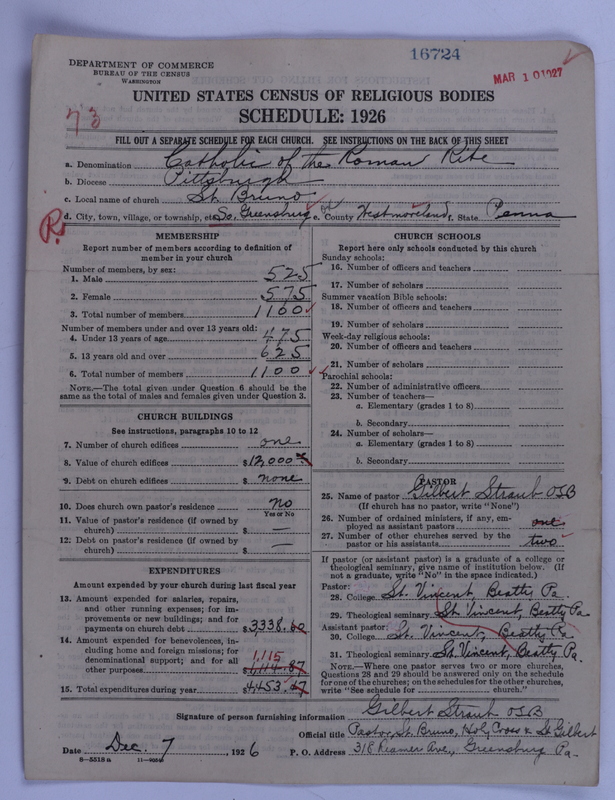 16724
MAR 10 1927
DEPARTMENT OF COMMERCE
BUREAU OF THE CENSUS
WASHINGTON
UNITED STATES CENSUS OF RELIGIOUS BODIES
SCHEDULE: 1926
73
FILL OUT A SEPARATE SCHEDULE FOR EACH CHURCH. SEE INSTRUCTIONS ON THE BACK OF THIS SHEET
a. Denomination Catholic of the Roman Rite
b. Diocese Pittsburgh
c. Local name of church St. Bruno
d. City, town, village, or township, etc. So. Greensburg e. County Westmoreland, State Penna
R.
MEMBERSHIP
Report number of members according to definition of
member in your church
Number of members, by sex:
1. Male 525
2. Female 575
3. Total number of members 1100
Number of members under and over 13 years old:
4. Under 13 years of age 475
5. 13 years old and over 625
6. Total number of members 1100
NOTE.—The total given under Question 6 should be
same as the total of males and females given under Question 3.
CHURCH BUILDINGS
See instructions, paragraphs 10 to 12
7. Number of church edifices one
8. Value of church edifices $12,000
9. Debt on church edifices $ none
10. Does church own pastor's residence no
Yes or No
11. Value of pastor's residence (if owned by
church) $
12. Debt on pastor's residence (if owned by
church) $ —
EXPENDITURES
Amount expended by your church during last fiscal year
13. Amount expended for salaries, repairs,
and other running expenses; for im-
provements or new buildings; and for
payments on church debt $3,338.60
14. Amount expended for benevolences, in-
cluding home and foreign missions; for
denominational support; and for all
1,115
other purposes $1,114.87
15. Total expenditures during year $4,453.47
CHURCH SCHOOLS
Report here only schools conducted by this church
Sunday schools:
16. Number of officers and teachers
17. Number of scholars
Summer vacation Bible schools:
18. Number of officers and teachers
19. Number of scholars
Week-day religious schools:
20. Number of officers and teachers
21. Number of scholars
Parochial schools:
22. Number of administrative officers
23. Number of teachers—
a. Elementary (grades 1 to 8)
b. Secondary
24. Number of scholars—
a. Elementary (grades 1 to 8)
b. Secondary
PASTOR
25. Name of pastor Gilbert Straub OSB
(If church has no pastor, write "None")
26. Number of ordained ministers, if any, em-
ployed as assistant pastors one
27. Number of other churches served by the
pastor or his assistants two
If pastor (or assistant pastor) is a graduate of a college or
theological seminary, give name of institution below. (If
not a graduate, write "No" in the space indicated.)
Pastor:
28. College St. Vincent, Beatty Pa.
29. Theological seminary St. Vincent, Beatty Pa
Assistant pastor:
30. College St. Vincent, Beatty Pa
31. Theological seminary St. Vincent, Beatty Pa.
NOTE.—Where one pastor serves two or more churches,
Questions 28 and 29 should be answered only on the schedule
for one of the churches; on the schedules for the other churches,
write "See schedule for church."
Signature of person furnishing information Gilbert Straub OSB
Official title Pastor, St. Bruno, Holy Cross & St. Gilbert
Date Dec. 7, 1926 P. O. Address 318 Reamer Ave., Greensburg Pa.
8—5518 a